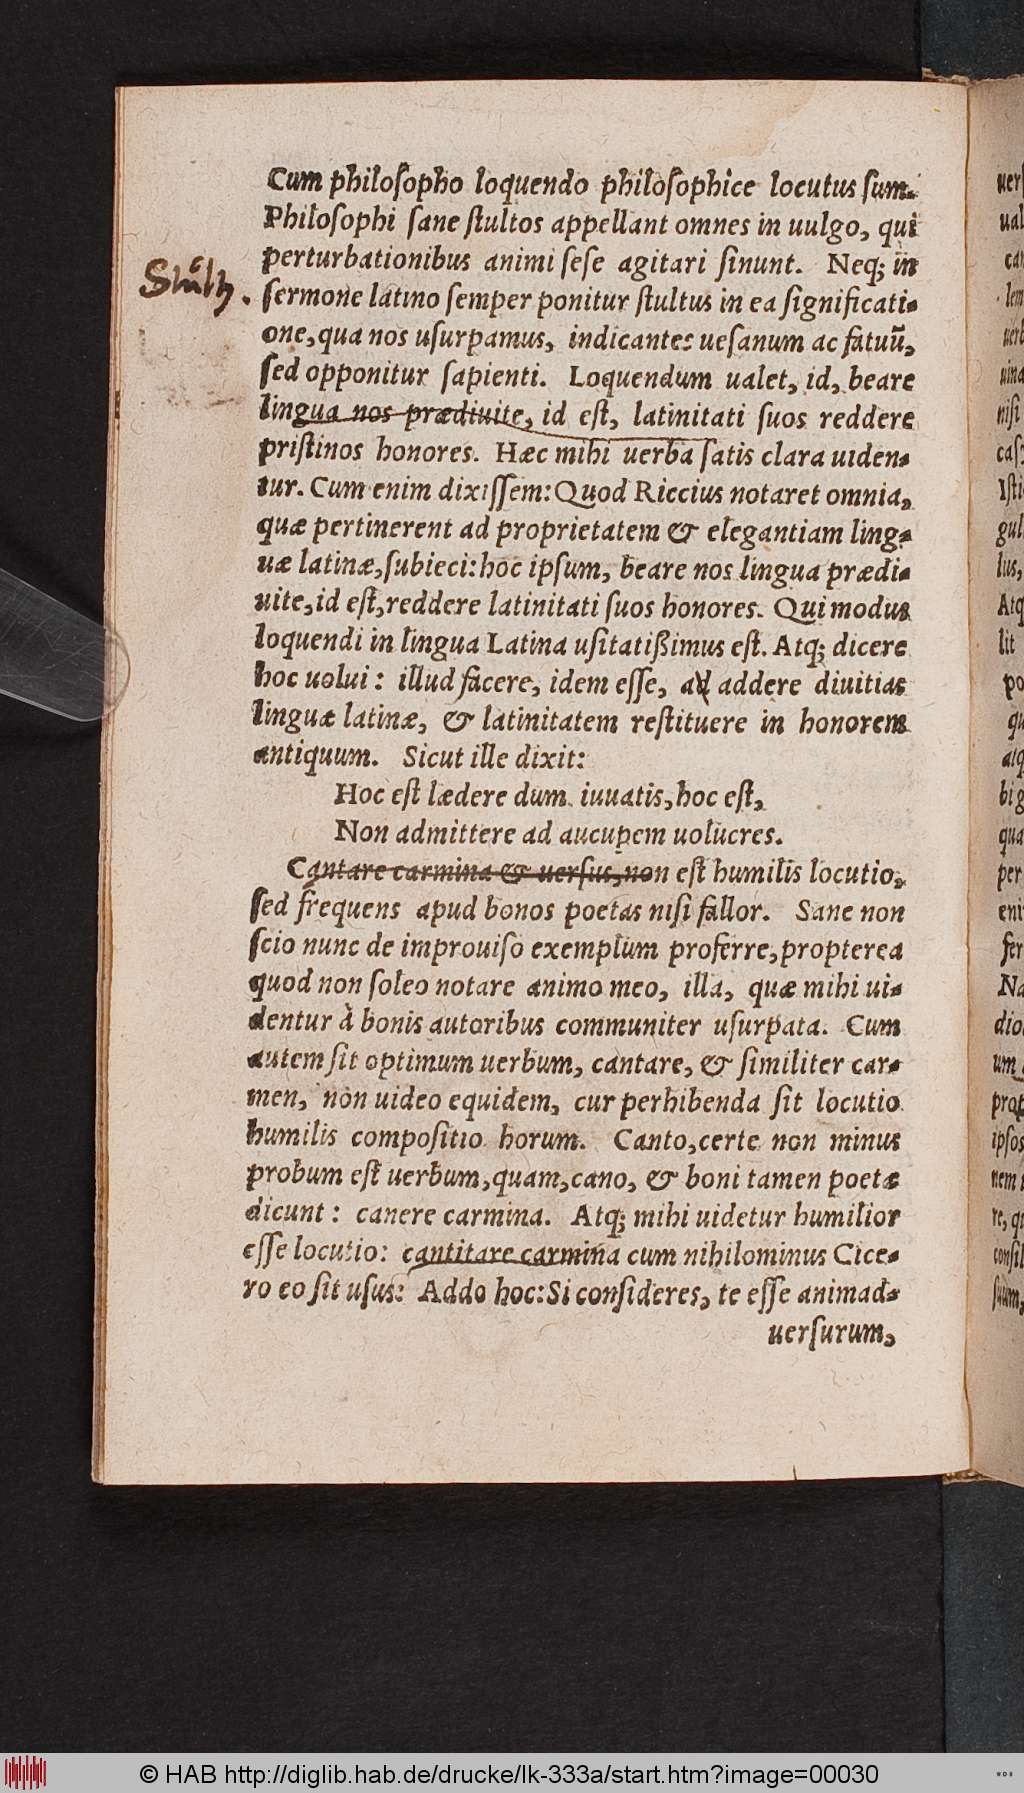 Cum philosopho loquendo philosophice locutus sum.
Philosophi sane stultos appellant omnes in uulgo, qui
perturbationibus animi sese agitari sinunt. Neq; in
sermone latino semper ponitur stultus in ea significati-
one, qua nos usurpamus, indicantes uesanum ac fatuũ,
sed opponitur sapienti. Loquendum ualet, id, beare
lingua nos prædiuite, id est, latinitati suos reddere
pristinos honores. Hæc mihi uerba satis clara uiden-
tur. Cum enim dixissem: Quod Riccius notaret omnia,
quæ pertinerent ad proprietatem & elegantiam ling-
uæ latinæ, subieci: hoc ipsum, beare nos lingua prædi-
uite, id est, reddere latinitati suos honores. Qui modus
loquendi in lingua Latina usitatißimus est. Atq; dicere
hoc uolui: illud facere, idem esse, ad addere diuitias
linguæ latinæ, & latinitatem restituere in honorem
antiquum. Sicut ille dixit:
Hoc est lædere dum iuuatis, hoc est,
Non admittere ad aucupem uolucres.
Cantare carmina & uersus, non est humilis locutio,
sed frequens apud bonos poetas nisi fallor. Sane non
scio nunc de improuiso exemplum proferre, propterea
quod non soleo notare animo meo, illa, quæ mihi ui-
dentur à bonis autoribus communiter usurpata. Cum
autem sit optimum uerbum, cantare, & similiter car-
men, non uideo equidem, cur perhibenda sit locutio
humilis compositio horum. Canto, certe non minus
probum est uerbum, quam, cano, & boni tamen poetæ
dicunt: canere carmina. Atq; mihi uidetur humilior
esse locutio: cantitare carmina cum nihilominus Cice-
ro eo sit usus: Addo hoc: Si consideres, te esse animad-
uersurum,
© HAB http://diglib.hab.de/drucke/lk-333a/start.htm?image=00030